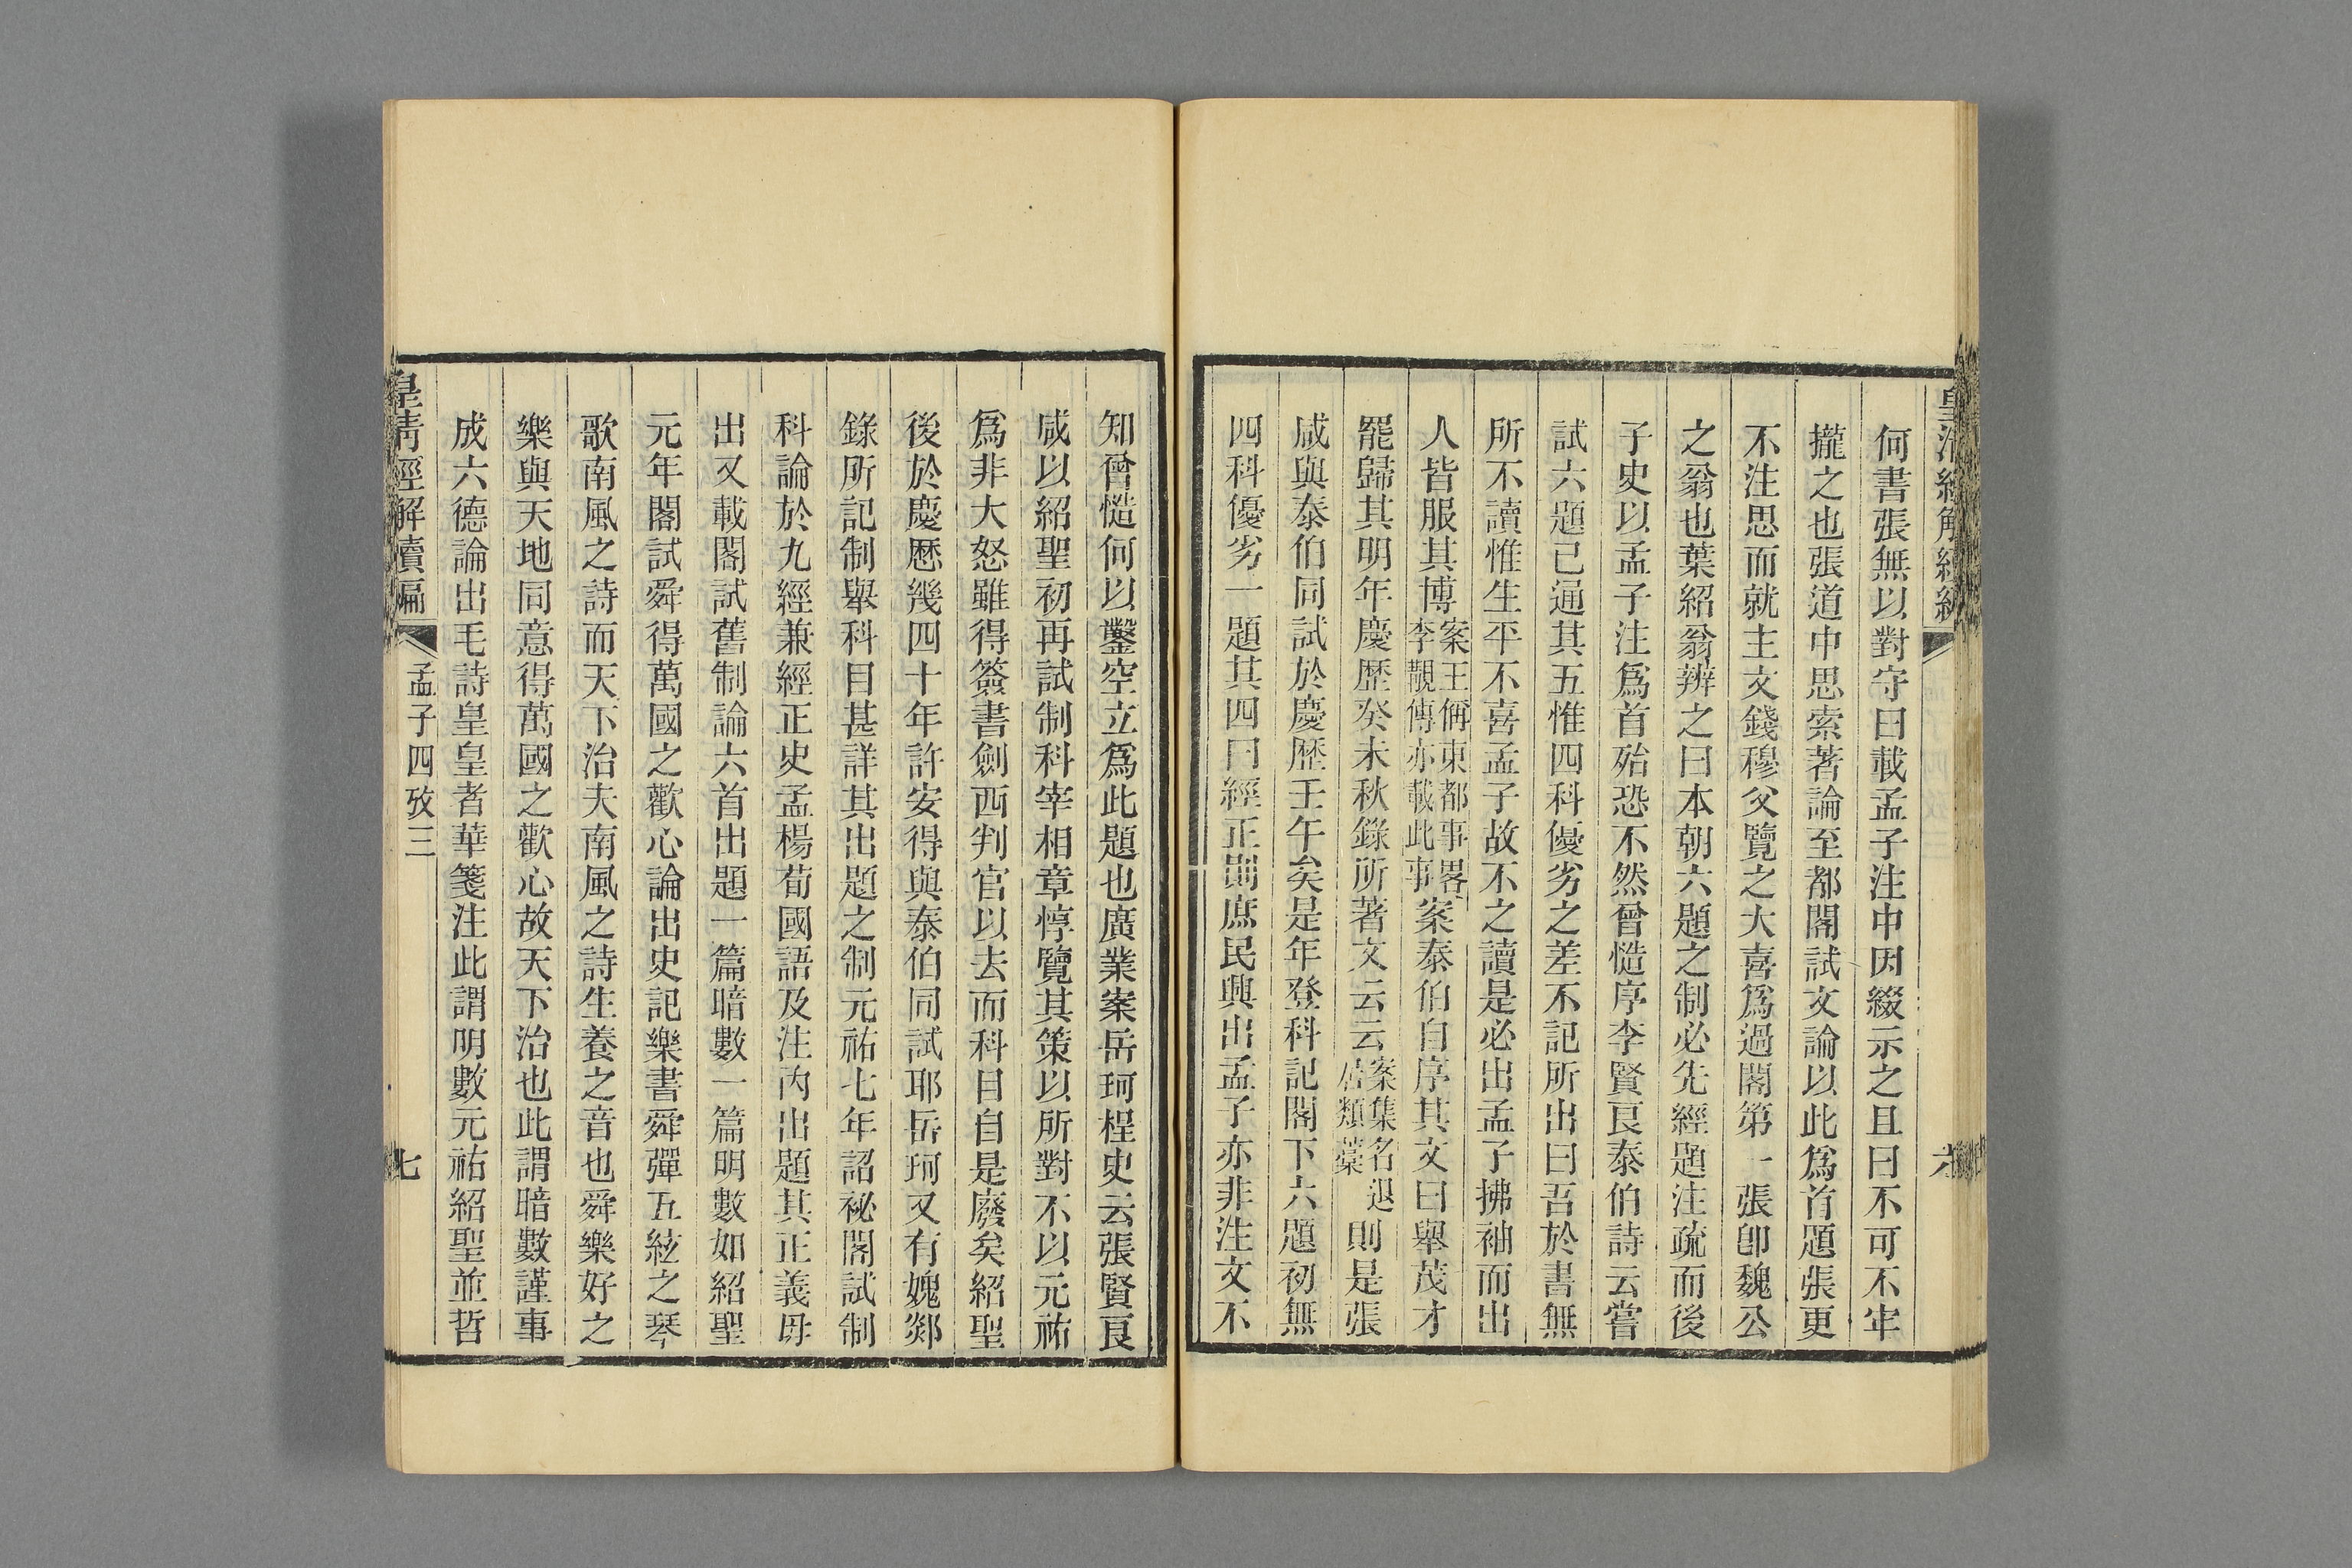 何書張無以對守曰載孟子注中因綴示之且曰不可不牢
攏之也張道中思索著論至都閣試文論以此爲首題張更
不注思而就主文錢穆父覽之大喜爲過閣第一張卽魏公
之翁也葉紹翁辨之曰本朝六題之制必先經題注疏而後
子史以孟子注爲首殆恐不然曾慥序李賢良泰伯詩云嘗
試六題已通其五惟四科優劣之差不記所出曰吾於書無
所不讀惟生平不喜孟子故不之讀是必出孟子拂袖而出
人皆服其博案王偁東都事畧李覯傳亦載此事案泰伯自序其文曰舉茂才
罷歸其明年慶歷癸未秋錄所著文云云案集名退居類藁則是張
咸與泰伯同試於慶歷壬午矣是年登科記閣下六題初無
四科優劣一題其四曰經正則庶民興出孟子亦非注文不
皇清經解續編 孟子四攷三 七
知曾慥何以鑿空立爲此題也廣業案岳珂桯史云張賢良
咸以紹聖初再試制科宰相章惇覽其策以所對不以元祐
爲非大怒雖得簽書劍西判官以去而科目自是廢矣紹聖
後於慶歷幾四十年許安得與泰伯同試耶岳珂又有媿郯
錄所記制舉科目甚詳其出題之制元祐七年詔祕閣試制
科論於九經兼經正史孟楊荀國語及注內出題其正義毋
出又載閣試舊制論六首出題一篇暗數一篇明數如紹聖
元年閣試舜得萬國之歡心論出史記樂書舜彈五絃之琴
歌南風之詩而天下治夫南風之詩生養之音也舜樂好之
樂與天地同意得萬國之歡心故天下治也此謂暗數謹事
成六德論出毛詩皇皇者華箋注此謂明數元祐紹聖並哲